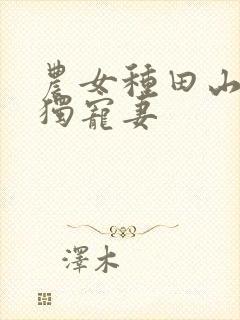 農女種田山
獨寵妻
澤木